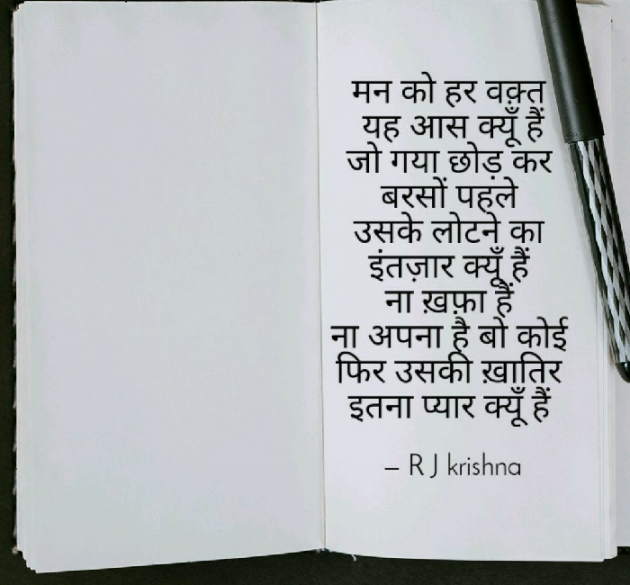 मन को हर वक़्त
यह आस क्यूँ हैं
जो गया छोड़ कर
बरसों पहले
उसके लोटने का
इंतज़ार क्यूँ हैं
ना ख़फ़ा हैं
ना अपना है बो कोई
फिर उसकी ख़ातिर
इतना प्यार क्यूँ हैं
– R J krishna